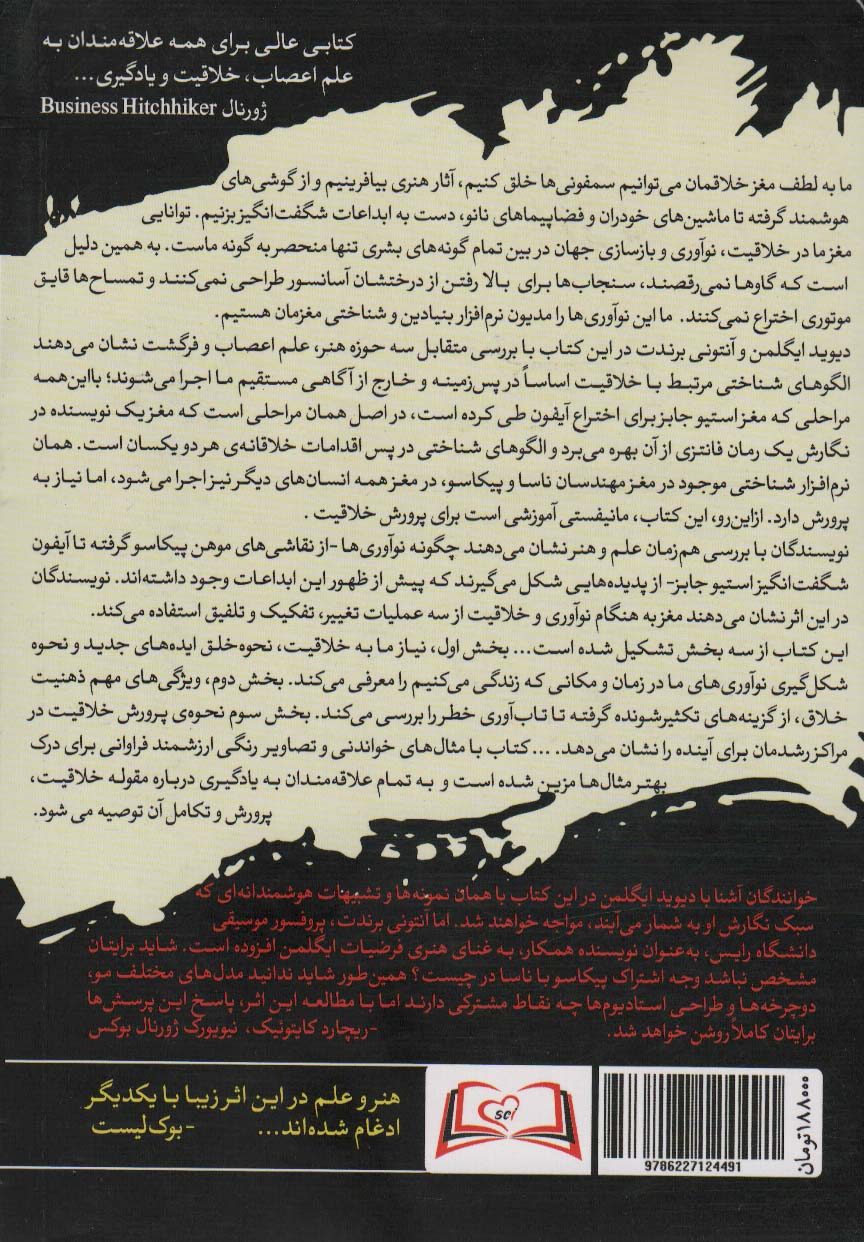 کتابی عالی برای همه علاقه‌مندان به
علم اعصاب، خلاقیت و یادگیری...
ژورنال Business Hitchhiker
ما به لطف مغز خلاقمان می‌توانیم سمفونی‌ها خلق کنیم، آثار هنری بیافرینیم و از گوشی‌های
هوشمند گرفته تا ماشین‌های خودران و فضاپیماهای نانو، دست به ابداعات شگفت‌انگیز بزنیم. توانایی
مغز ما در خلاقیت، نوآوری و بازسازی جهان در بین تمام گونه‌های بشری تنها منحصر به گونه ماست. به همین دلیل
است که گاوها نمی‌رقصند، سنجاب‌ها برای بالا رفتن از درختشان آسانسور طراحی نمی‌کنند و تمساح‌ها قایق
موتوری اختراع نمی‌کنند. ما این نوآوری‌ها را مدیون نرم‌افزار بنیادین و شناختی مغزمان هستیم.
دیوید ایگلمن و آنتونی برندت در این کتاب با بررسی متقابل سه حوزه هنر، علم اعصاب و فرگشت نشان می‌دهند
الگوهای شناختی مرتبط با خلاقیت اساساً در پس‌زمینه و خارج از آگاهی مستقیم ما اجرا می‌شوند؛ بااین‌همه
مراحلی که مغز استیو جابز برای اختراع آیفون طی کرده است، در اصل همان مراحلی است که مغز یک نویسنده در
نگارش یک رمان فانتزی از آن بهره می‌برد و الگوهای شناختی در پس اقدامات خلاقانه‌ی هر دو یکسان است. همان
نرم‌افزار شناختی موجود در مغز مهندسان ناسا و پیکاسو، در مغز همه انسان‌های دیگر نیز اجرا می‌شود، اما نیاز به
پرورش دارد. ازاین‌رو، این کتاب، مانیفستی آموزشی است برای پرورش خلاقیت .
نویسندگان با بررسی هم‌زمان علم و هنر نشان می‌دهند چگونه نوآوری‌ها -از نقاشی‌های موهن پیکاسو گرفته تا آیفون
شگفت‌انگیز استیو جابز- از پدیده‌هایی شکل می‌گیرند که پیش از ظهور این ابداعات وجود داشته‌اند. نویسندگان
در این اثر نشان می‌دهند مغز به هنگام نوآوری و خلاقیت از سه عملیات تغییر، تفکیک و تلفیق استفاده می‌کند.
این کتاب از سه بخش تشکیل شده است... بخش اول، نیاز ما به خلاقیت، نحوه‌خلق ایده‌های جدید و نحوه
شکل‌گیری نوآوری‌های ما در زمان و مکانی که زندگی می‌کنیم را معرفی می‌کند. بخش دوم، ویژگی‌های مهم ذهنیت
خلاق، از گزینه‌های تکثیرشونده گرفته تا تاب‌آوری خطر را بررسی می‌کند. بخش سوم نحوه‌ی پرورش خلاقیت در
مراکز رشدمان برای آینده را نشان می‌دهد. ... کتاب با مثال‌های خواندنی و تصاویر رنگی ارزشمند فراوانی برای درک
بهتر مثال‌ها مزین شده است و به تمام علاقه‌مندان به یادگیری درباره مقوله خلاقیت،
پرورش و تکامل آن توصیه می شود.
خوانندگان آشنا با دیوید ایگلمن در این کتاب با همان نمونه‌ها و تشبیهات هوشمندانه‌ای که
سبک نگارش او به شمار می‌آیند، مواجه خواهند شد. اما آنتونی برندت، پروفسور موسیقی
دانشگاه رایس، به‌عنوان نویسنده همکار، به غنای هنری فرضیات ایگلمن افزوده است. شاید برایتان
مشخص نباشد وجه اشتراک پیکاسو با ناسا در چیست؟ همین‌طور شاید ندانید مدل‌های مختلف مو،
دوچرخه‌ها و طراحی استادیوم‌ها چه نقاط مشترکی دارند اما با مطالعه این اثر، پاسخ این پرسش‌ها
برایتان کاملاً روشن خواهد شد. -ریچارد کایتوئیک، نیویورک ژورنال بوکس
هنر و علم در این اثر زیبا با یکدیگر
ادغام شده‌اند... -بوک‌لیست
sci
9786227124491
۱۸۸۰۰۰ تومان